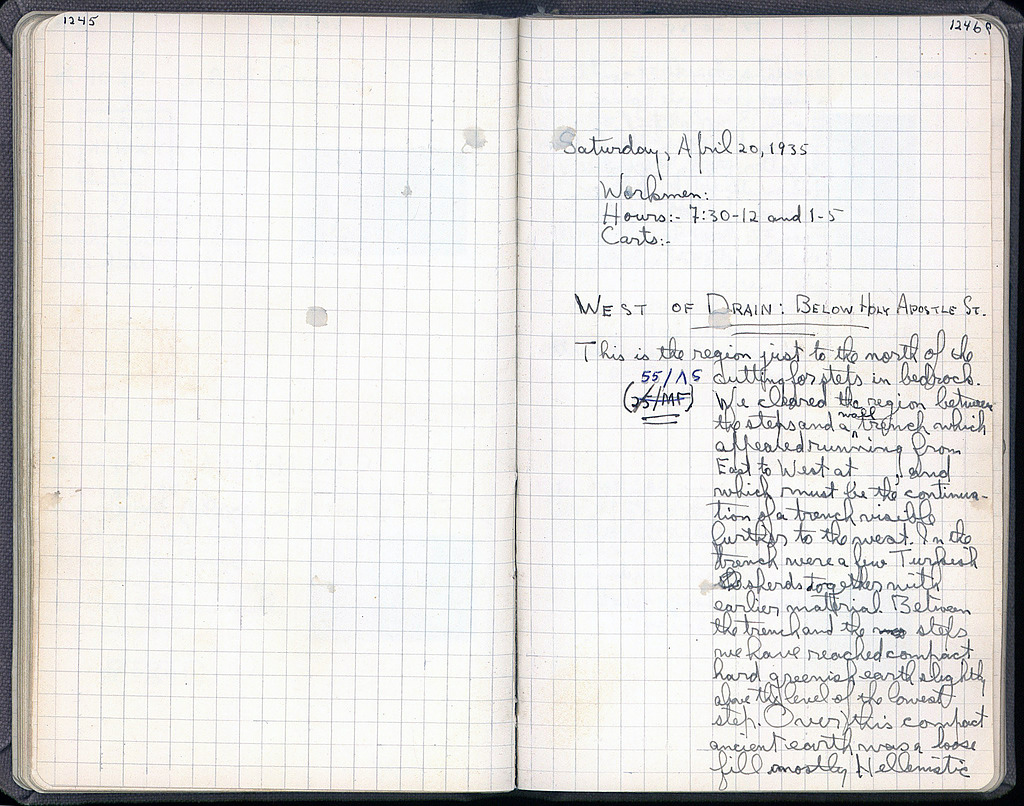 1245
1246
Saturday, April 20, 1935
Workmen:
Hours:- 7:30-12 and 1-5
Carts:-
WEST OF DRAIN: BELOW HOLY APOSTLE ST.
This is the region just to the north of the
55/ΛΣ cutting for steps in bedrock.
We cleared the region between
wall
the steps and a trench which
appeared running from
East to West at , and
which must be the continua-
tion of a trench visible
further to the west. In the
trench were a few Turkish
sherds together with
earlier material. Between
the trench and the steps
we have reached compact
hard greenish earth slightly
above the level of the lowest
step. Over this compact
ancient earth was a loose
fill mostly Hellenistic